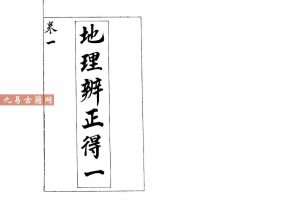 地理辨正得一
卷一
九易古籍网